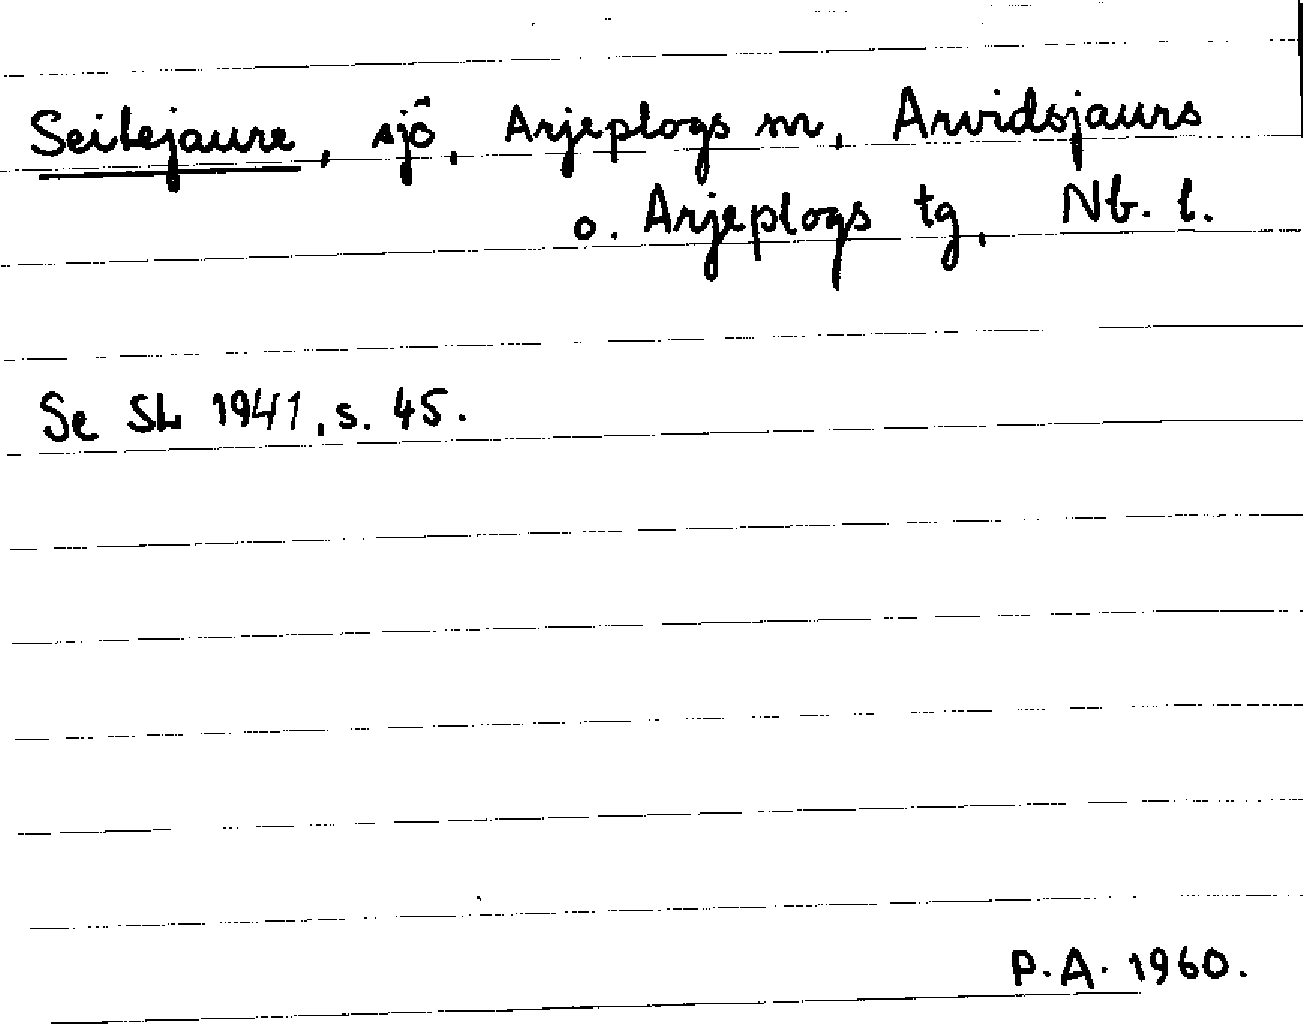 Seitejaure, sjö, Arjeplogs m, Arvidsjaurs
o. Arjeplogs tg, Nb. l.
Se SL 1941, s. 45.
P.A. 1960.